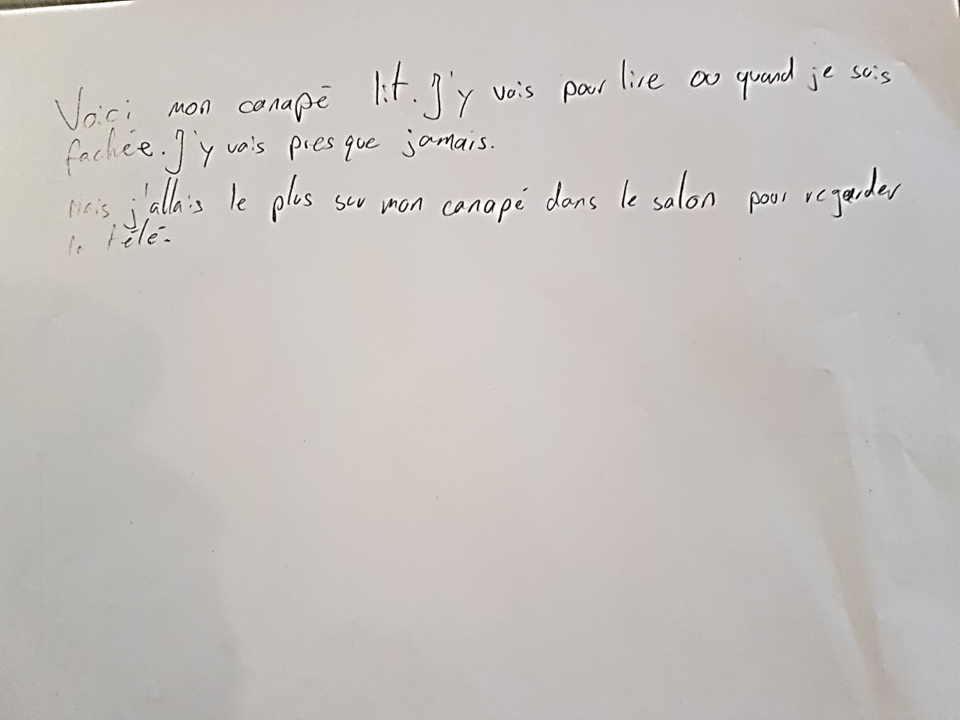 Voici mon canapé lit. J'y vais pour lire ou quand je suis
fachée. J'y vais presque jamais.
Mais j'allais le plus sur mon canapé dans le salon pour regarder
la télé.